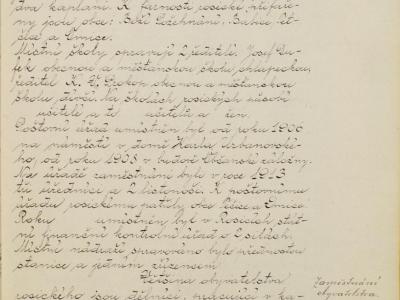 dva kaplani. K farnosti rosické přifaře-
ny jsou obce:
Místní školy spravují 2 ředitelé. Josef
obecnou a měšťanskou školu chlapeckou,
ředitel K. obecnou a měšťanskou
školu dívčí. Na školách rosických působí
učitelé a to učitelů a žen
Poštovní úřad umístěn byl od roku 1906
na náměstí v domě Karla Urbanovské-
ho, od roku 1908 v budově Občanské záložny.
Na úřadě zaměstnáni byli v roce 1913
tři úředníci a 2 listonoši. K poštovnímu
úřadu rosickému patřily obce a
Roku umístěn byl v Rosicích stát-
ní finanční kontrolní úřad o silách.
Místní nádraží spravováno bylo přednostou
stanice a jedním zřízencem
Většina obyvatelstva
rosického jsou dělníci, pracující v ka-
Zaměstnání
obyvatelstva.